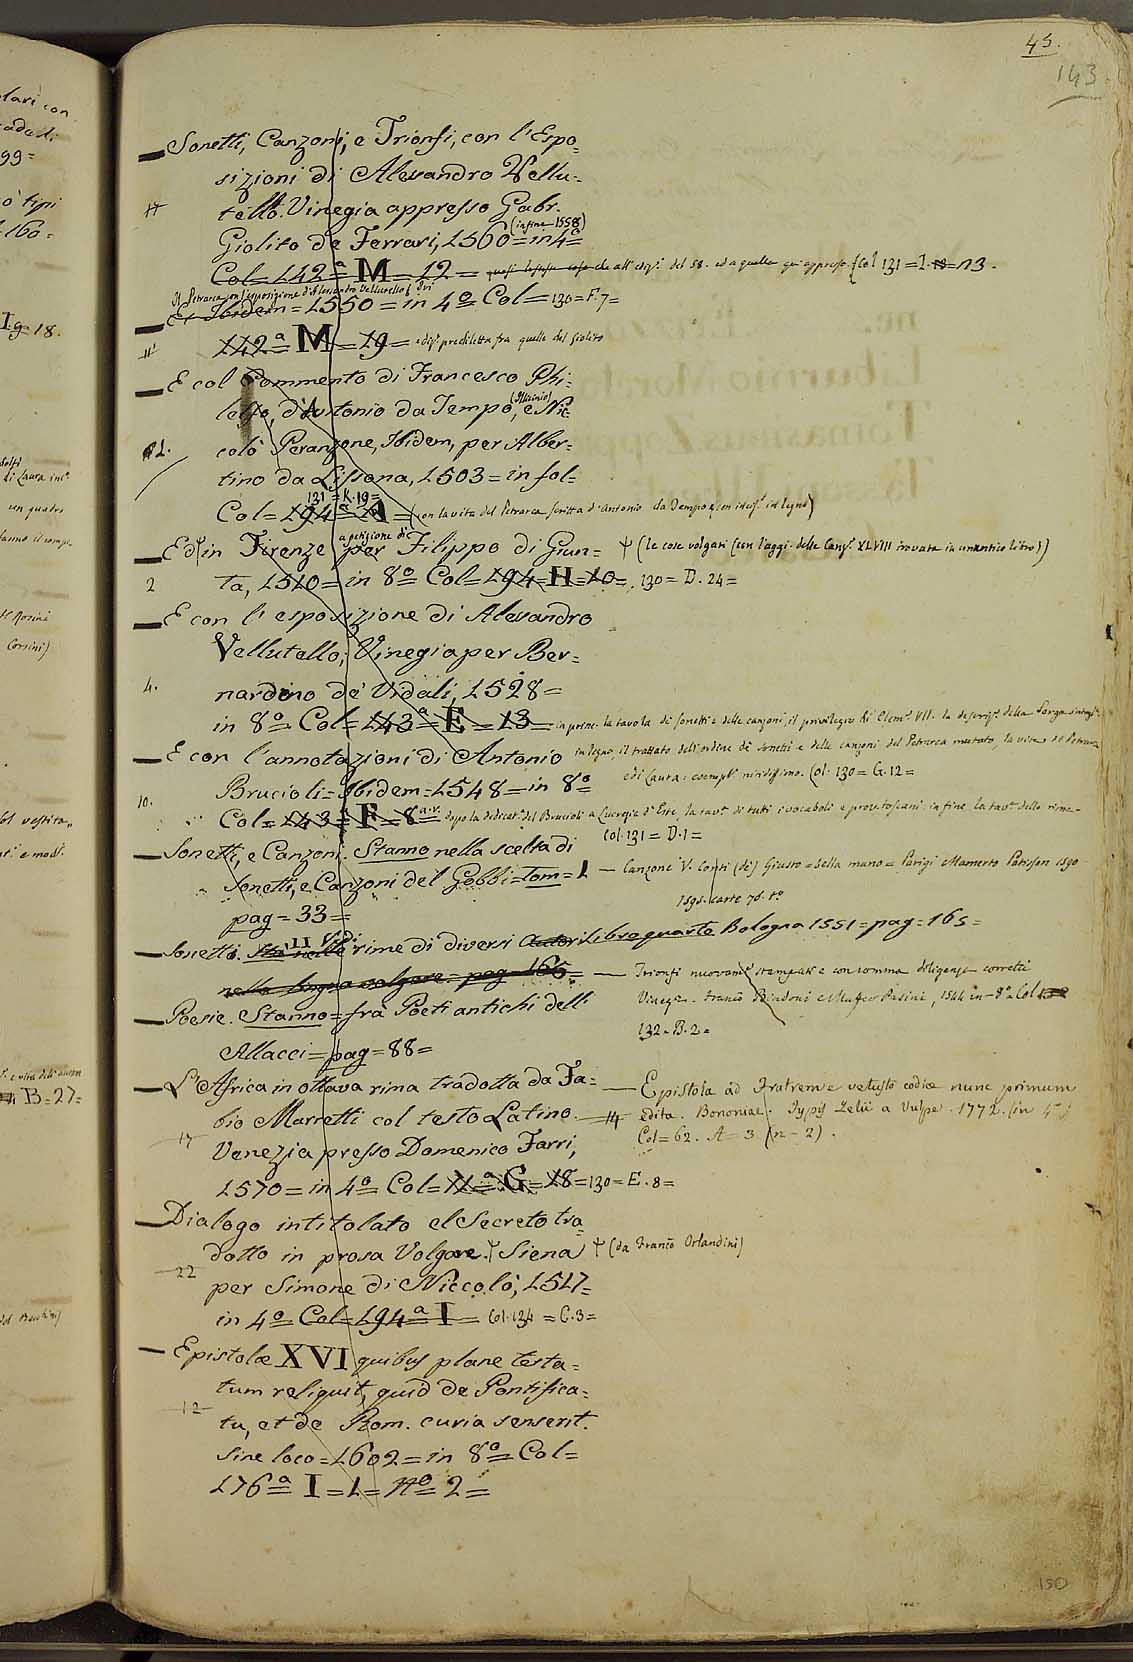 45.
143.
Sonetti, Canzoni, e Trionfi, con l'Espo=
sizioni di Alesandro Vellu=
tello. Vinegia appresso Gabr.
(in fine 1558)
Giolito de Ferrari, 1560=in 4º
Col=142ª M=12= che all'ediz.e del 58. ed a quella qui appresso. Col 131=I.=n3.
Il Petrarca con l'esposizione d'Alessandro Vellutello Ivi
Et Ibidem=1550=in 4º Col=130=F.7=
142ª=M=19= ediz.e prediletta fra quelle del Giolito
E col Commento di Francesco Phi=
lelfo, d'Antonio da Tempo, (Illicinio) e Nic=
colò Peranzone, Ibidem, per Alber=
tino da Lissona, 1503=in fol=
131=K.19=
Col=194ª A= (con la vita del Petrarca scritta d'Antonio da Tempo, con in legno)
a petizione di
Ed in Firenze per Filippo di Giun= (le cose volgari (con l'aggi. delle Canz.i XLVIII trovate in un antico libro))
2 ta, 1510=in 8º Col=194=H=10=. 130=D.24=
E con l'esposizione di Alesandro
Vellutello, Vinegia per Ber=
4. nardino de' Vidali, 1528=
in 8º Col=143ª=E=13= in princ. la tavola di sonetti e delle canzoni, il privilegio di Clem.e VII. la descriz.e della Sorga
E con l'annotazioni di Antonio in legno, il trattato dell'ordine de' sonetti e delle canzoni del Petrarca mutato, la vita del Petrarca
e di Laura. esempl.e nitidissimo. Col. 130=G.12=
10. Brucioli=Ibidem=1548=in 8º
Col=143=F=8ª.v. dopo la dedicat.a del Brucioli a Lucrezia d'Este, la tav.a di tutti i vocaboli e prov. toscani: in fine la tav.a delle rime=
Col. 131=D.1=
Sonetti, e Canzoni. Stanno nella scelta di
Sonetti, e Canzoni del Gobbi=Tom=1 — Canzone V. Conti (de') Giusto=bella mano=Parigi Mamerto Patisson 1590
1595. carte 76. tº
pag=33=
Sonetti. Sta nelle II rime di diversi Autori Libro quarto Bologna 1551=pag=165=
nella lingua volgare=pag=165= — Trionfi nuovam.e stampati e con somma diligenza corretti
Vinegia. Franc.o Bindoni e Maffeo Pasini, 1544 in-8º=Col
132=B.2=
Poesie. Stanno=fra Poeti antichi dell'
Allacci=pag=88=
L'Africa in ottava rima tradotta da Fa= — Epistola ad Fratrem e vetusto codice nunc primum
bio Marretti col testo Latino. 14 edita. Bononiae. Typis Lelii a Vulpe. 1772. (in 4º)
Col=62. A=3 (n-2).
17 Venezia presso Domenico Farri,
1570=in 4º Col=11ª=G=18=130=E.8=
Dialogo intitolato el Secreto tra=
dotto in prosa Volgare. Siena (da Franc.o Orlandini)
22 per Simone di Niccolò, 1517=
in 4º Col=194ª I= Col.134=C.3=
Epistolæ XVI quibus plane testa=
tum reliquit, quid de Pontifica=
12 tu, et de Rom. curia senserit.
Sine loco=1602=in 8º Col=
176ª I=1=Nº 2=
150